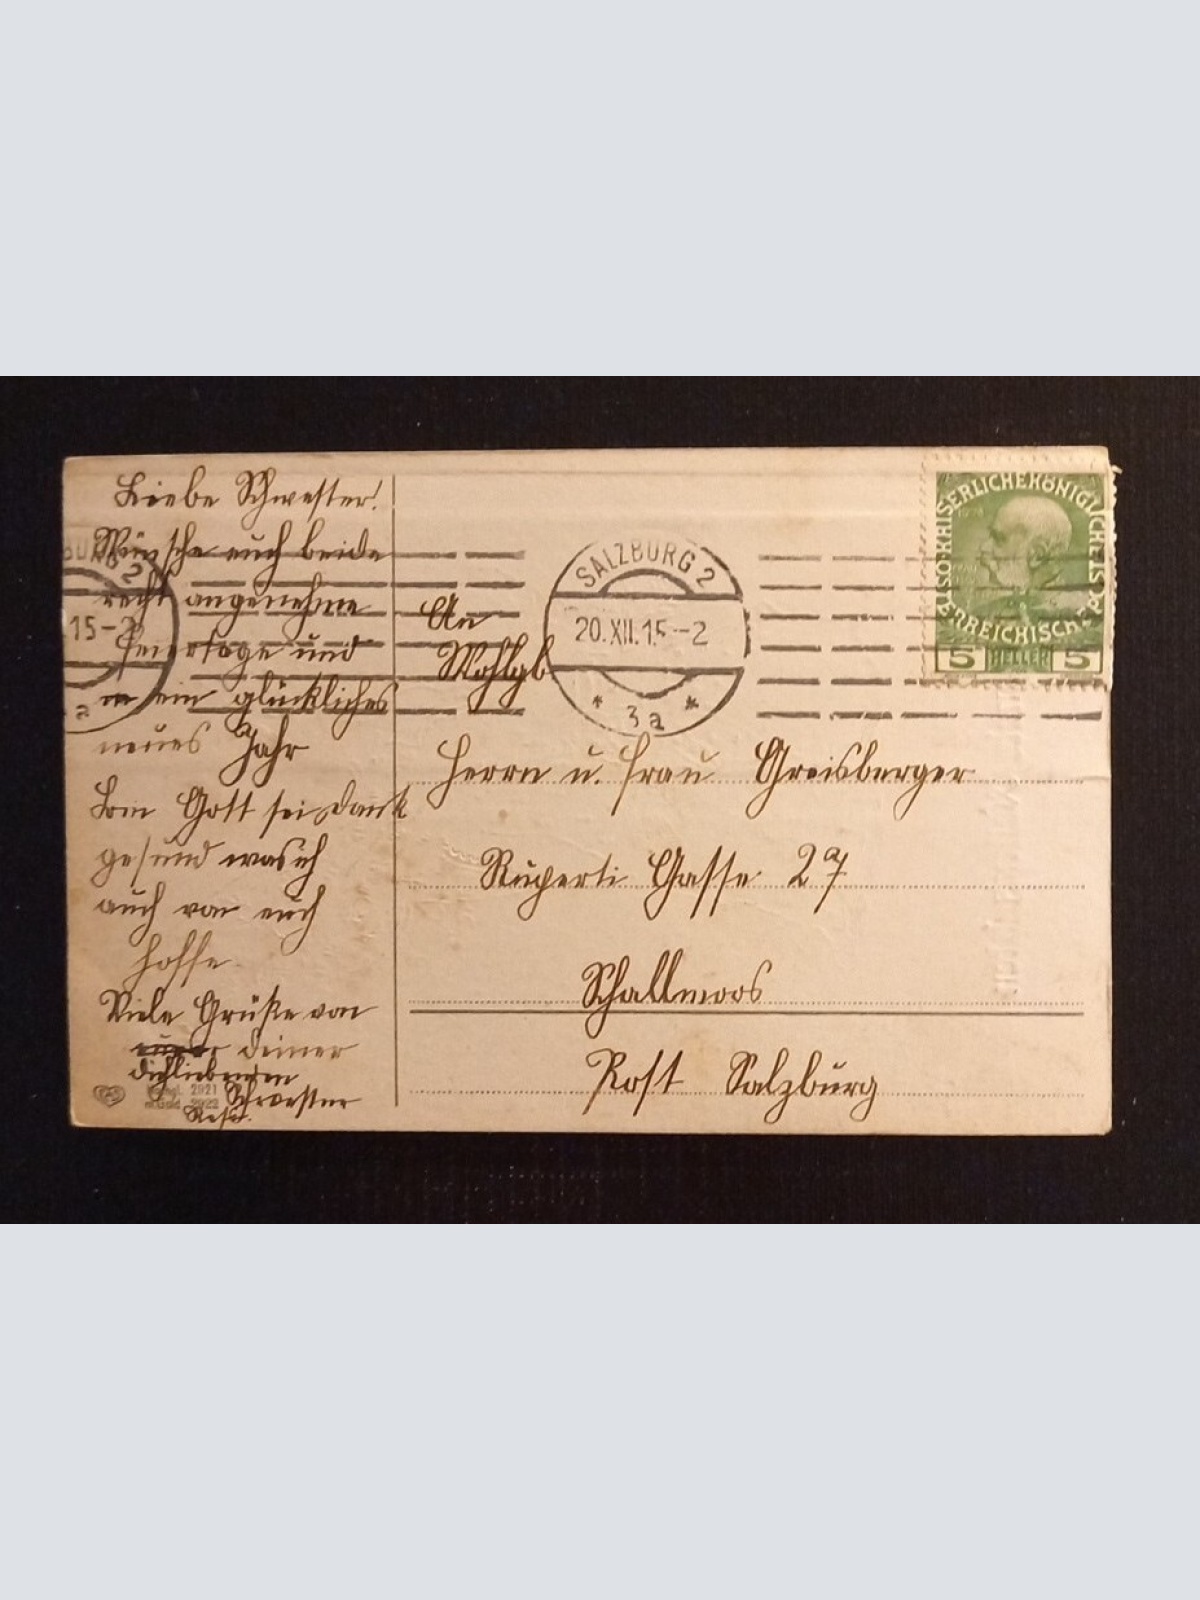 Liebe Schwester!
Wünsche euch beide
recht angenehme
Feiertage und
ein glückliches
neues Jahr
Bin Gott sei dank
gesund was ich
auch von euch
hoffe
Viele Grüße von
deiner
dichliebenden
Schwester
Resi.
2921
2922
BURG 2
15-2
a
SALZBURG 2
20.XII.15-2
* 3a *
KAISERLICHEKÖNIGLICHE
ÖSTERREICHISCHE POST
1908
5 HELLER 5
An
Wohlgb
Herrn u. Frau Greisberger
Ruperti Gasse 27
Schallmoos
Post Salzburg